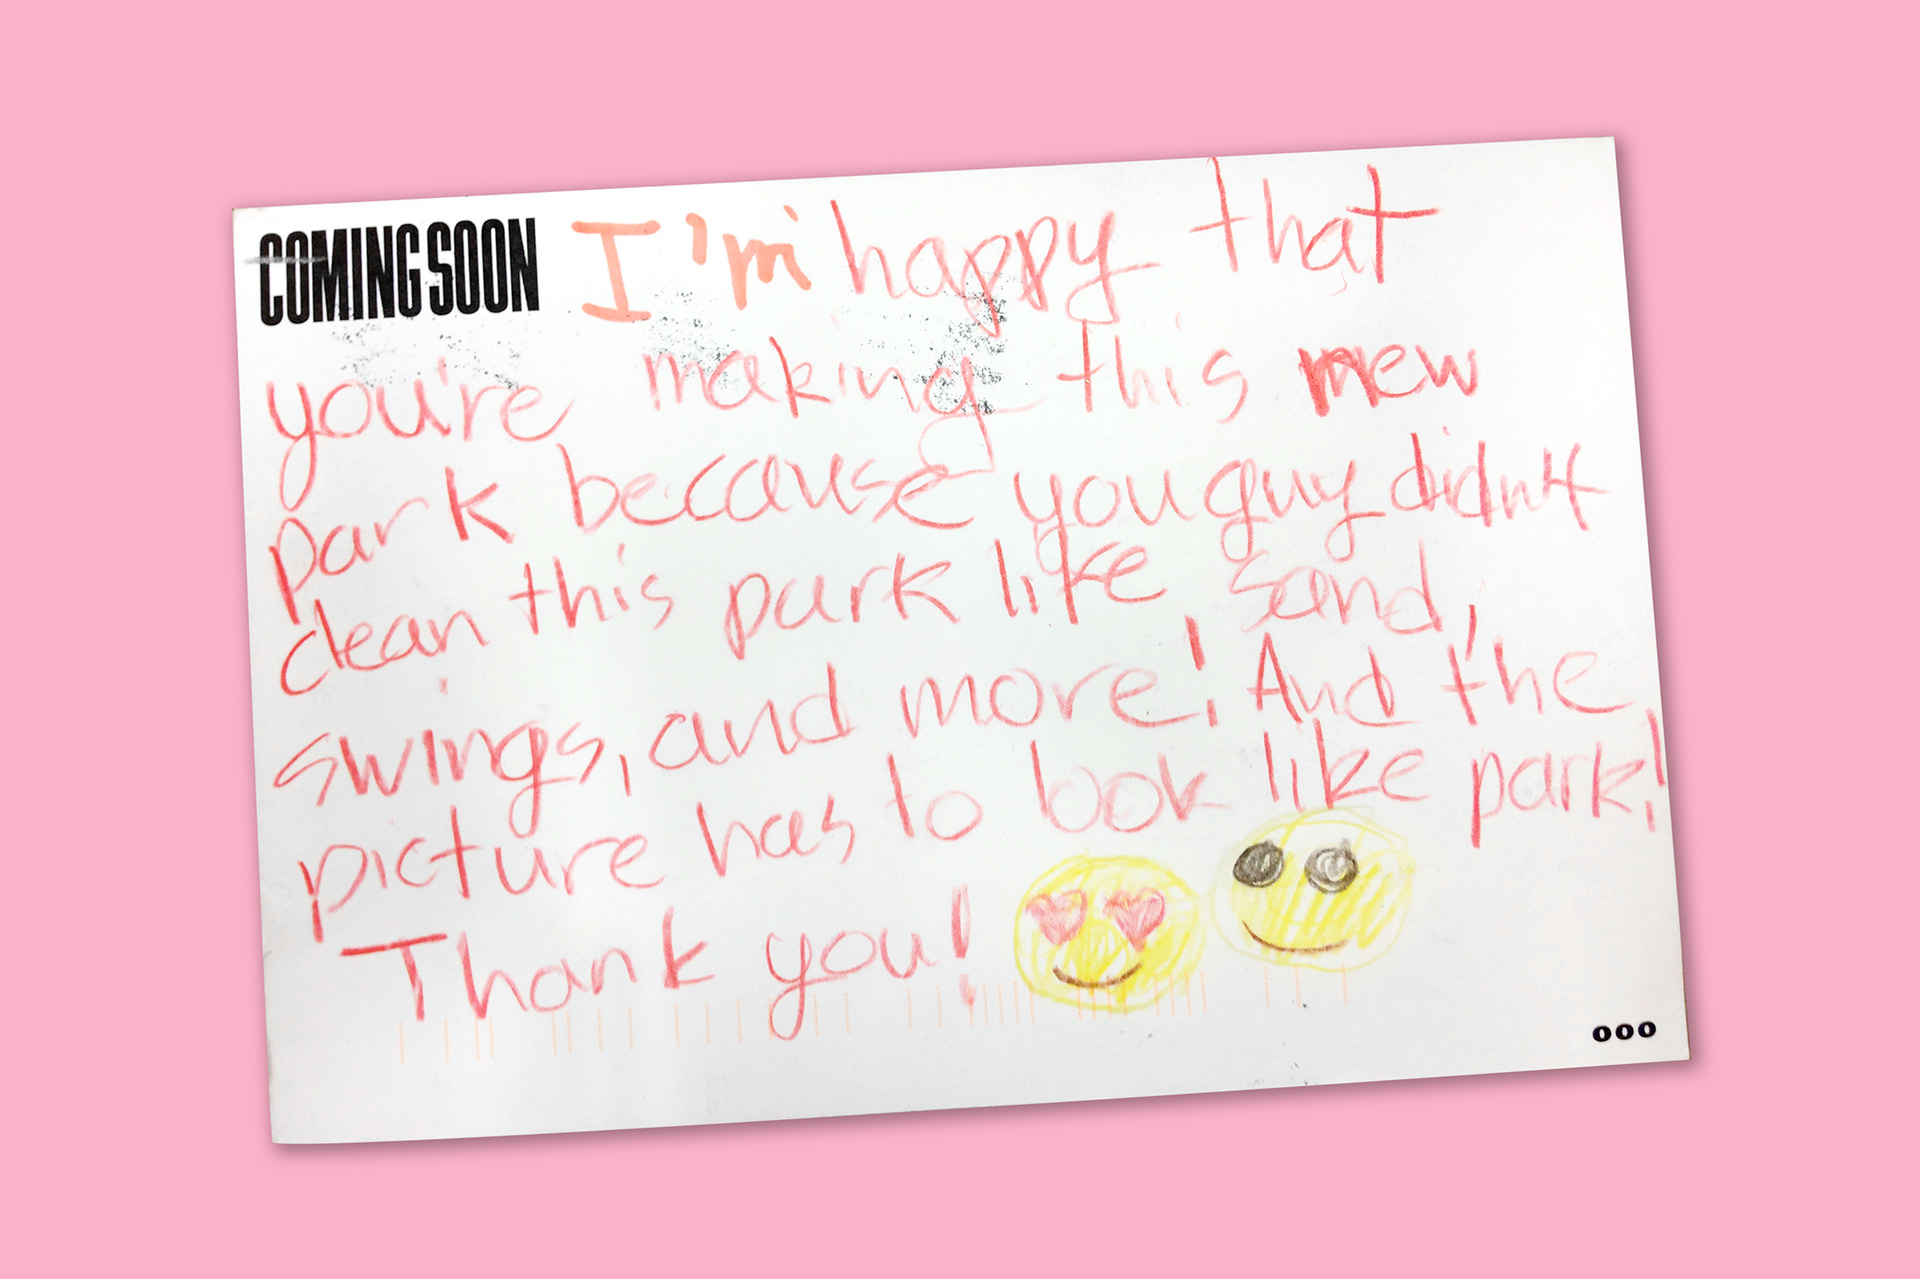 COMING SOON I'm happy that
you're making this mew
park because you guy didn't
clean this park like sand,
swings, and more! And the
picture has to look like park!
Thank you!
ooo